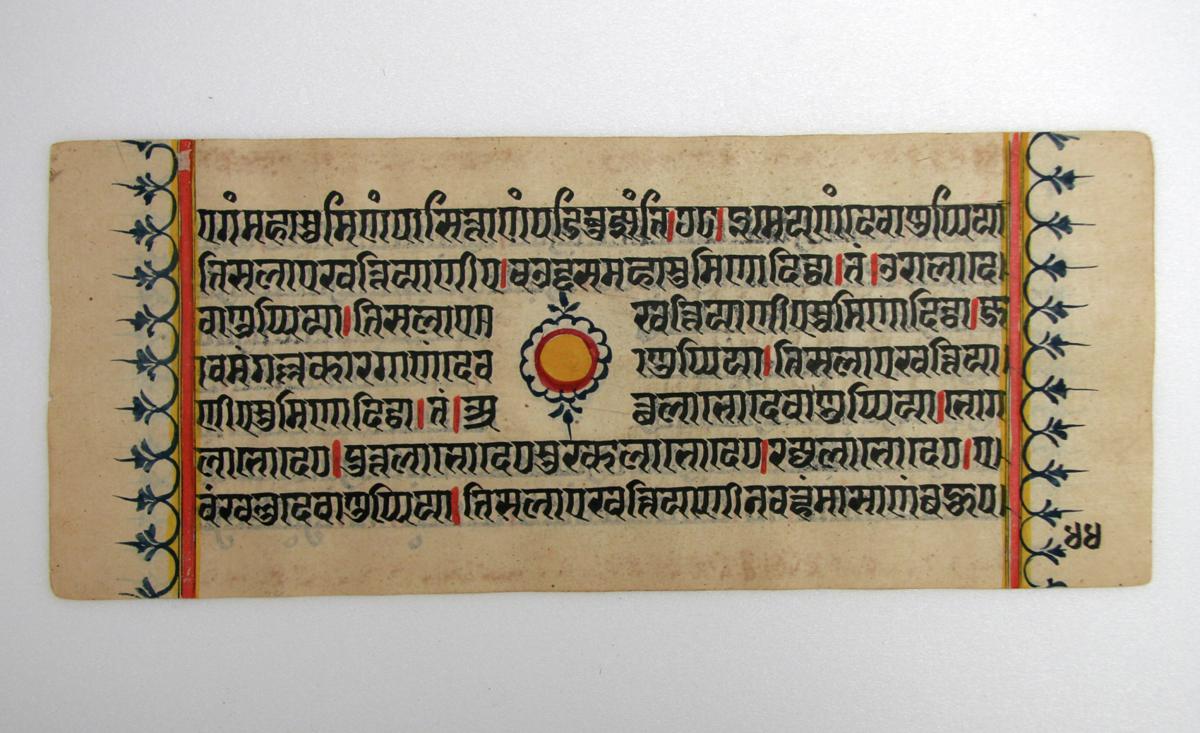 एगं महासुमिणं पासित्ताणं पडिबुझंति।७७। इमेयणं देवाणुप्पिया
तिसलाए खत्तियाणीए।चउद्दसमहासुमिणा दिट्ठा।तं।उरालाणं दे
वाणुप्पिया।तिसलाए खत्तियाणीए सुमिणा दिट्ठा।ज
ाव मंगल्लकारगाणं देवाणुप्पिया।तिसलाए खत्तिया
णीए सुमिणा दिट्ठा।तं।अत्थलाभो देवाणुप्पिया।भोग
लाभो दे०।पुत्तलाभो दे० सुरकलाभो दे०।रज्जलाभो दे०।ए
वं खलु देवाणुप्पिया।तिसलाए खत्तियाणी नवण्हं मासाणं बहुप
४४